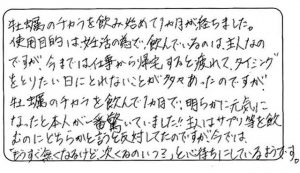 牡蠣のチカラを飲み始めて1ヵ月が経ちました。
使用目的は、妊活の為で、飲んでいるのは、主人なの
ですが、今までは仕事から帰宅すると疲れて、タイミング
をとりたい日にとれないことが多々あったのですが
牡蠣のチカラを飲んで1カ月で、明らかに元気に
なったと本人が一番驚いていました!!主人はサプリ等を飲
むのにどちらかと言うと反対してたのですが今では、
「もうすぐ無くなるけど、次くるのいつ?」と心待ちにしているようです。